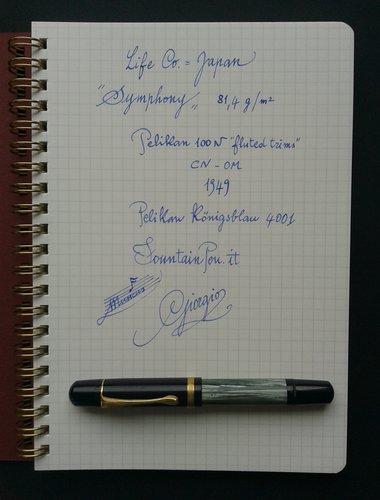 Life Co. = Japan
"Symphony" 81,4 g/m²
Pelikan 100N "fluted trims"
CN - OM
1949
Pelikan Königsblau 4001
FountainPen.it
Giorgio